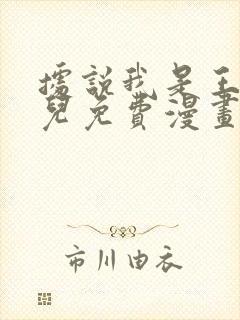 據説我是王
兒免費漫畫
市川由衣